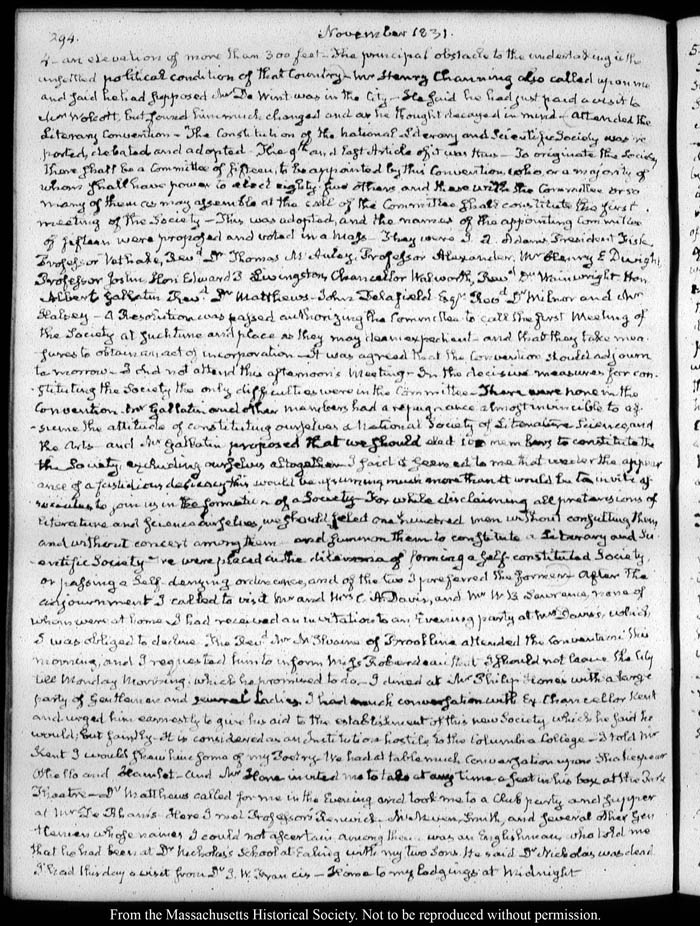 294.
November 1831.
4 – an elevation of more than 300 feet – The principal obstacle to the undertaking is the
unsettled political condition of that Country – Mr Henry Channing also called upon me
and said he had supposed Mr De Wint was in the City – He said he had just paid a visit to
Mr Wolcott, but found him much changed and as he thought decayed in mind – Attended the
Literary Convention – The Constitution of the National Literary and Scientific Society was re-
ported, debated and adopted – The 9th and last Article of it was thus – To originate the Society
there shall be a Committee of fifteen, to be appointed by this Convention, who, or a majority of
whom shall have power to elect eighty-five others and these with the Committee or so
many of them as may assemble at the call of the Committee shall constitute the first
meeting of the Society – This was adopted, and the names of the appointing Committee
of fifteen were proposed and voted in a Mass – They were J. Q. Adams President Fisk,
Professor Vethake, Revd Dr Thomas McAuley, Professor Alexander, Mr Henry E Dwight,
Professor Joslin, Hon Edward P Livingston, Chancellor Walworth, Revd Dr Wainwright Hon
Albert Gallatin Revd Dr Matthews – John Delafield Esqr. Revd Dr Milnor and Mr
Halsey – A Resolution was passed authorizing the Committee to call the first Meeting of
the Society at such time and place as they may deem expedient – and that they take mea-
sures to obtain an act of incorporation – It was agreed that the Convention should adjourn
to-morrow – I did not attend this afternoon's Meeting – In the decisive measures for con-
stituting the Society the only difficulties were in the Committee – There were none in the
Convention. Mr Gallatin and other members had a repugnance almost invincible to as-
sume the attitude of constituting ourselves a National Society of Literature Science and
the Arts – and Mr Gallatin proposed that we should elect members to constitute the
the Society, excluding ourselves altogether – I said it seemed to me that under the appear-
ance of a fastidious delicacy this would be assuming much more than it would be to invite as-
sociates to join us in the formation of a Society – For while disclaiming all pretensions of
literature and Science ourselves, we should select one hundred men without consulting them
and without concert among them – and summon them to constitute a Literary and Sci-
entific Society – we were placed in the dilemma of forming a self-constituted Society,
or passing a Self-denying ordinance, and of the two I preferred the former – After the
adjournment I called to visit Mr and Mrs C. A Davis, and Mr W. B Lawrence, none of
whom were at home – I had received an invitation to an Evening party at Mrs Davis, which
I was obliged to decline – The Revd Mr McIlvaine of Brooklyn attended the Convention this
morning, and I requested him to inform Miss Roberdeau that I should not leave the City
till Monday Morning, which he promised to do – I dined at Mr Philip Hone's with a large
party of Gentlemen and several Ladies. I had much conversation with Ex Chancellor Kent
and urged him earnestly to give his aid to the establishment of this new Society, which he said he
would; but faintly – It is considered as an Institution hostile to the Columbia College – I told Mr
Kent I would shew him some of my Poetry – We had at table much Conversation upon Shakespear
Othello and Hamlet – And Mr Hone invited me to take at any time a seat in his box at the Park
Theatre – Dr Matthews called for me in the Evening and took me to a Club party and supper
at Mr De Rham's – Here I met Professors Renwick, McNeven, Smith, and several other Gen-
tlemen whose names I could not ascertain – among them was an Englishman, who told me
that he had been at Dr Nicholas's School at Ealing with my two Sons. He said Dr Nicholas was dead.
I had this day a visit from Dr J. W. Francis – Home to my lodgings at Midnight
From the Massachusetts Historical Society. Not to be reproduced without permission.